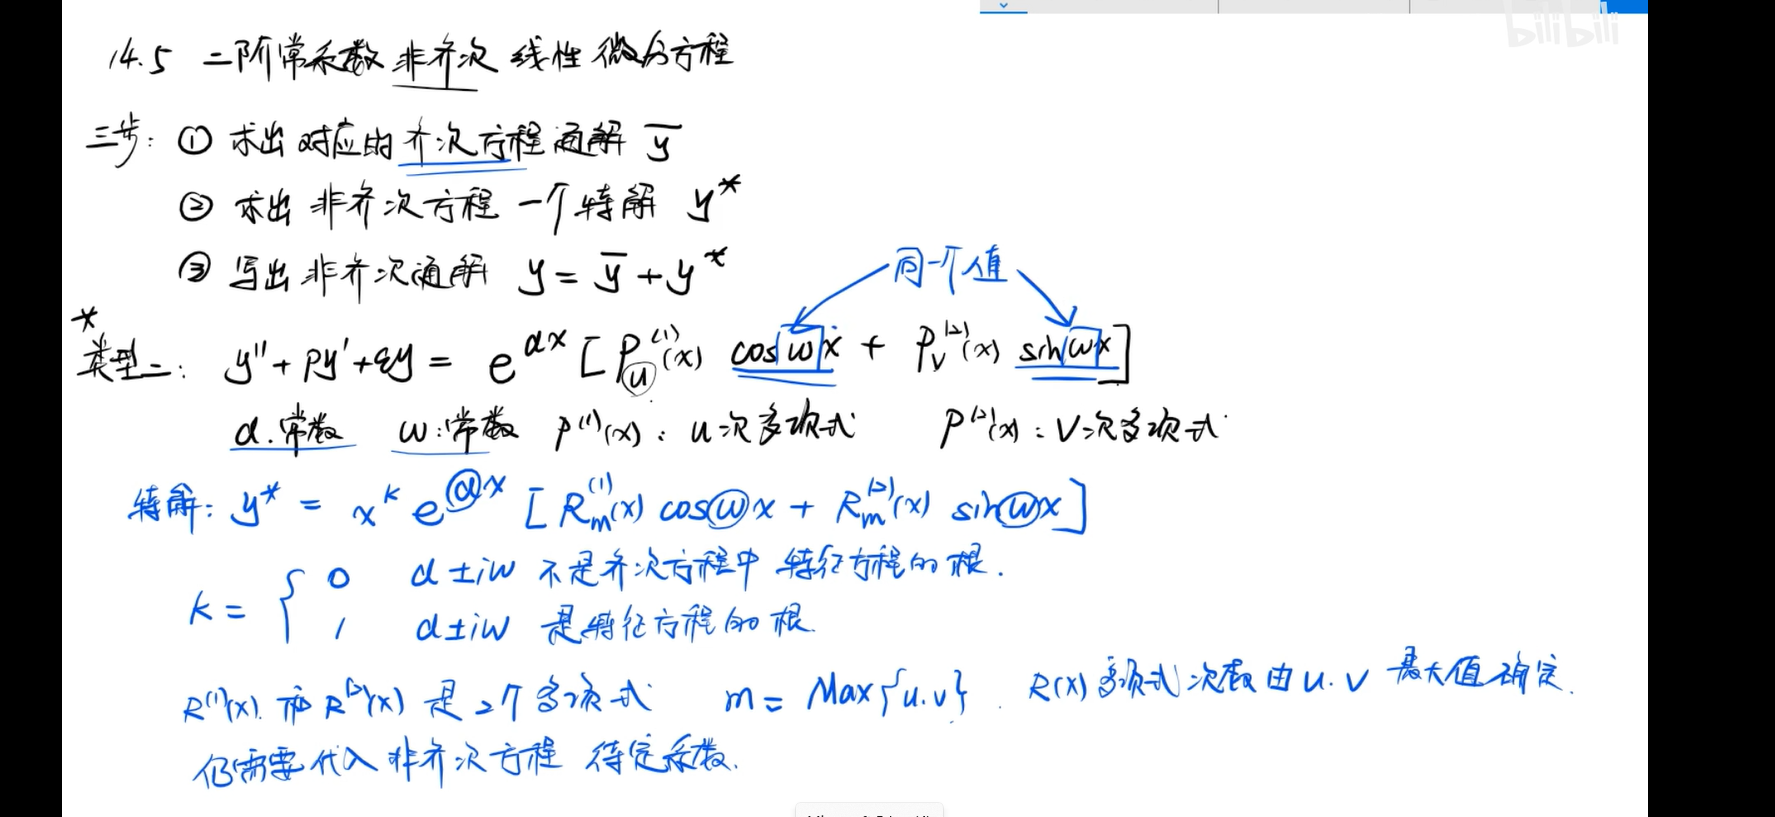 bilibili
14.5 二阶常系数非齐次线性微分方程
三步: ① 求出对应的齐次方程通解 ȳ
② 求出非齐次方程一个特解 y*
③ 写出非齐次通解 y = ȳ + y*
同一个值
* 类型二: y'' + py' + qy = e^{αx} [P_u^{(1)}(x) cosωx + P_v^{(2)}(x) sinωx]
α.常数 ω:常数 P^{(1)}(x): u次多项式 P^{(2)}(x): v次多项式
特解: y* = x^k e^{αx} [R_m^{(1)}(x) cosωx + R_m^{(2)}(x) sinωx]
k = { 0 α±iω 不是齐次方程中特征方程的根.
1 α±iω 是特征方程的根.
R^{(1)}(x). 和 R^{(2)}(x) 是2个多项式 m = Max{u.v}. R(x)多项式次数由u.v最大值确定.
仍需要代入非齐次方程 待定系数.